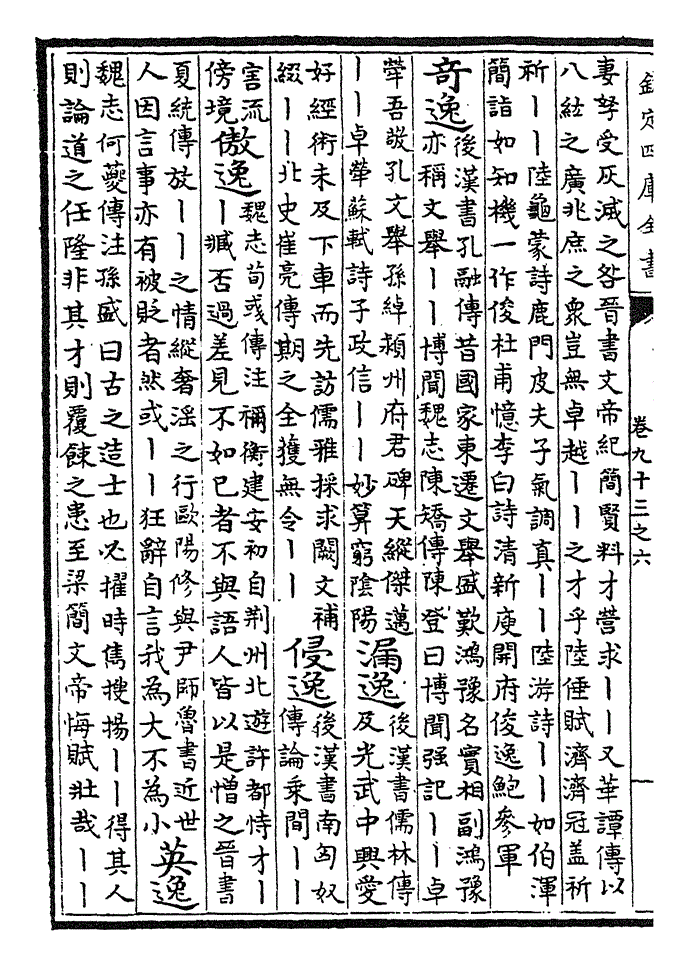 欽定四庫全書
卷九十三之六
妻孥受灰滅之咎晉書文帝紀簡賢料才營求丨丨又華譚傳以
八紘之廣兆庶之衆豈無卓越丨丨之才乎陸倕賦濟濟冠盖祈
祈丨丨陸龜蒙詩鹿門皮夫子氣調真丨丨陸游詩丨丨如伯渾
簡詣如知機一作俊杜甫憶李白詩清新庾開府俊逸鮑參軍
奇逸
後漢書孔融傳昔國家東遷文舉盛歎鴻豫名實相副鴻豫
亦稱文舉丨丨博聞魏志陳矯傳陳登曰博聞强記丨丨卓
犖吾敬孔文舉孫綽潁州府君碑天縱傑邁
丨丨卓犖蘇軾詩子政信丨丨妙算窮隂陽
漏逸
後漢書儒林傳
及光武中興愛
好經術未及下車而先訪儒雅採求闕文補
綴丨丨北史崔亮傳期之全獲無令丨丨
侵逸
後漢書南匈奴
傳論乘間丨丨
害流
傍境
傲逸
魏志荀彧傳注禰衡建安初自荆州北遊許都恃才丨
丨臧否過差見不如已者不與語人皆以是憎之晉書
夏統傳放丨丨之情縱奢淫之行歐陽修與尹師魯書近世
人因言事亦有被貶者然或丨丨狂辭自言我為大不為小
英逸
魏志何夔傳注孫盛曰古之造士也必擢時雋搜揚丨丨得其人
則論道之任隆非其才則覆餗之患至梁簡文帝悔賦壯哉丨丨